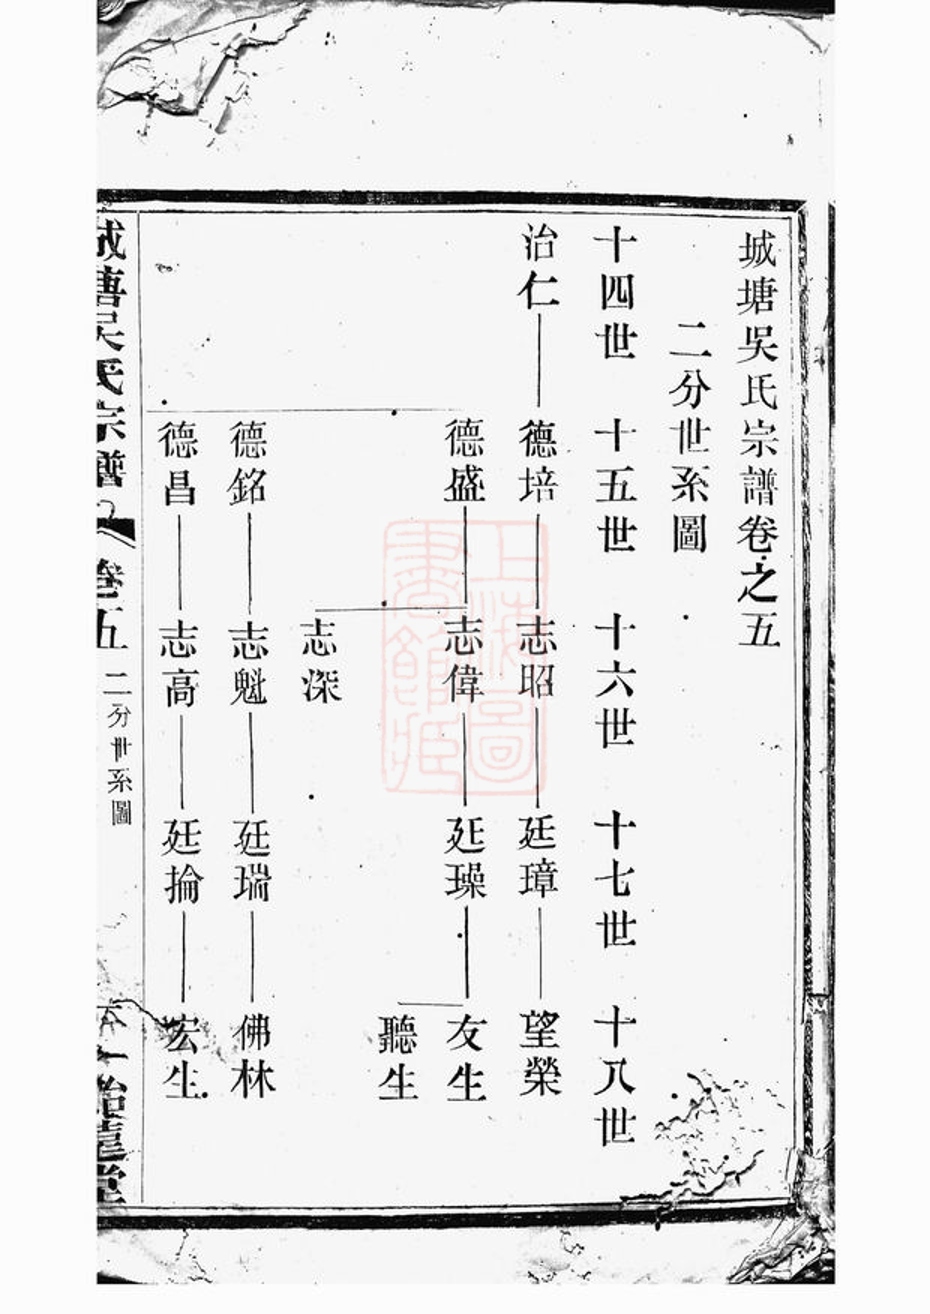 城塘吳氏宗譜卷之五
二分世系圖
十四世 十五世 十六世 十七世 十八世
治仁 德培 志昭 廷璋 望榮
德盛 志偉 廷璪 友生
聽生
志深
德銘 志魁 廷瑞 佛林
德昌 志高 廷掄 宏生
城塘吳氏宗譜 卷五 二分世系圖 一
上海圖書館藏